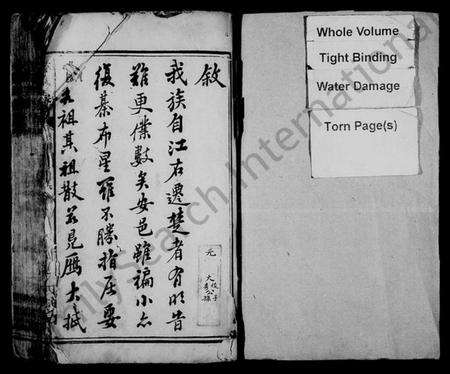 敘
我族自江右遷楚者有明昔
難更僕數矣安邑雖褊小亦
復棊布星羅不勝指屈要
祖其祖散若晨雁大抵
元
大
Whole Volume
Tight Binding
Water Damage
Torn Page(s)
FamilySearch International